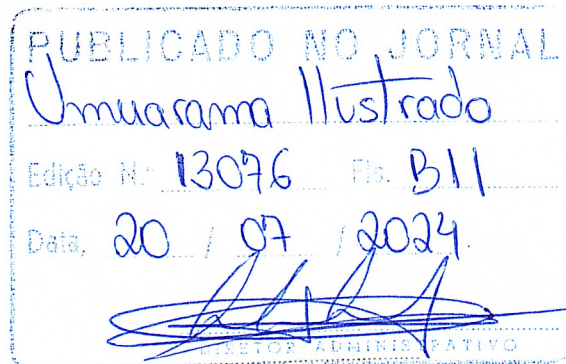 PUBLICADO NO JORNAL
Umuarama Ilustrado
Edição N.º 13076 Fls. B11
Data, 20 / 07 / 2024
DIRETOR ADMINISTRATIVO